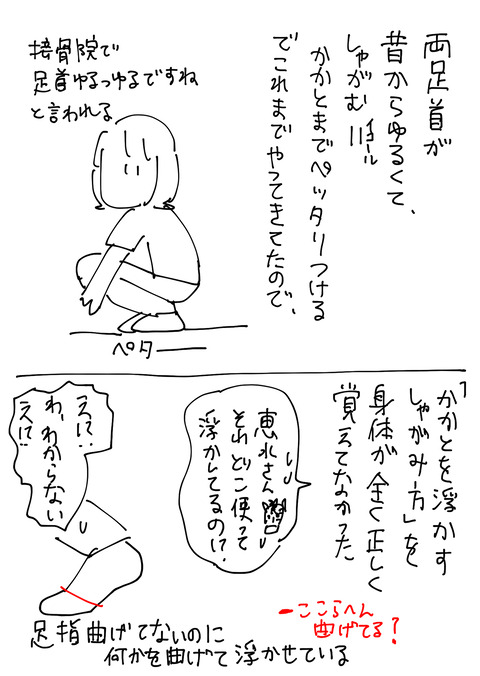 両足首が
昔からゆるくて、
しゃがむ=イコール
かかとまでペッタリつける
でこれまでやってきてたので、
接骨院で
足首ゆるっゆるですね
と言われる
ペター
「かかとを浮かす
しゃがみ方」を
身体が全く正しく
覚えてなかった
恵水さん
それどこ使って
浮かしてるの!?
えに!?
わ、わからない
えに!?
ーここらへん
曲げてる?
足指曲げてないのに
何かを曲げて浮かせている